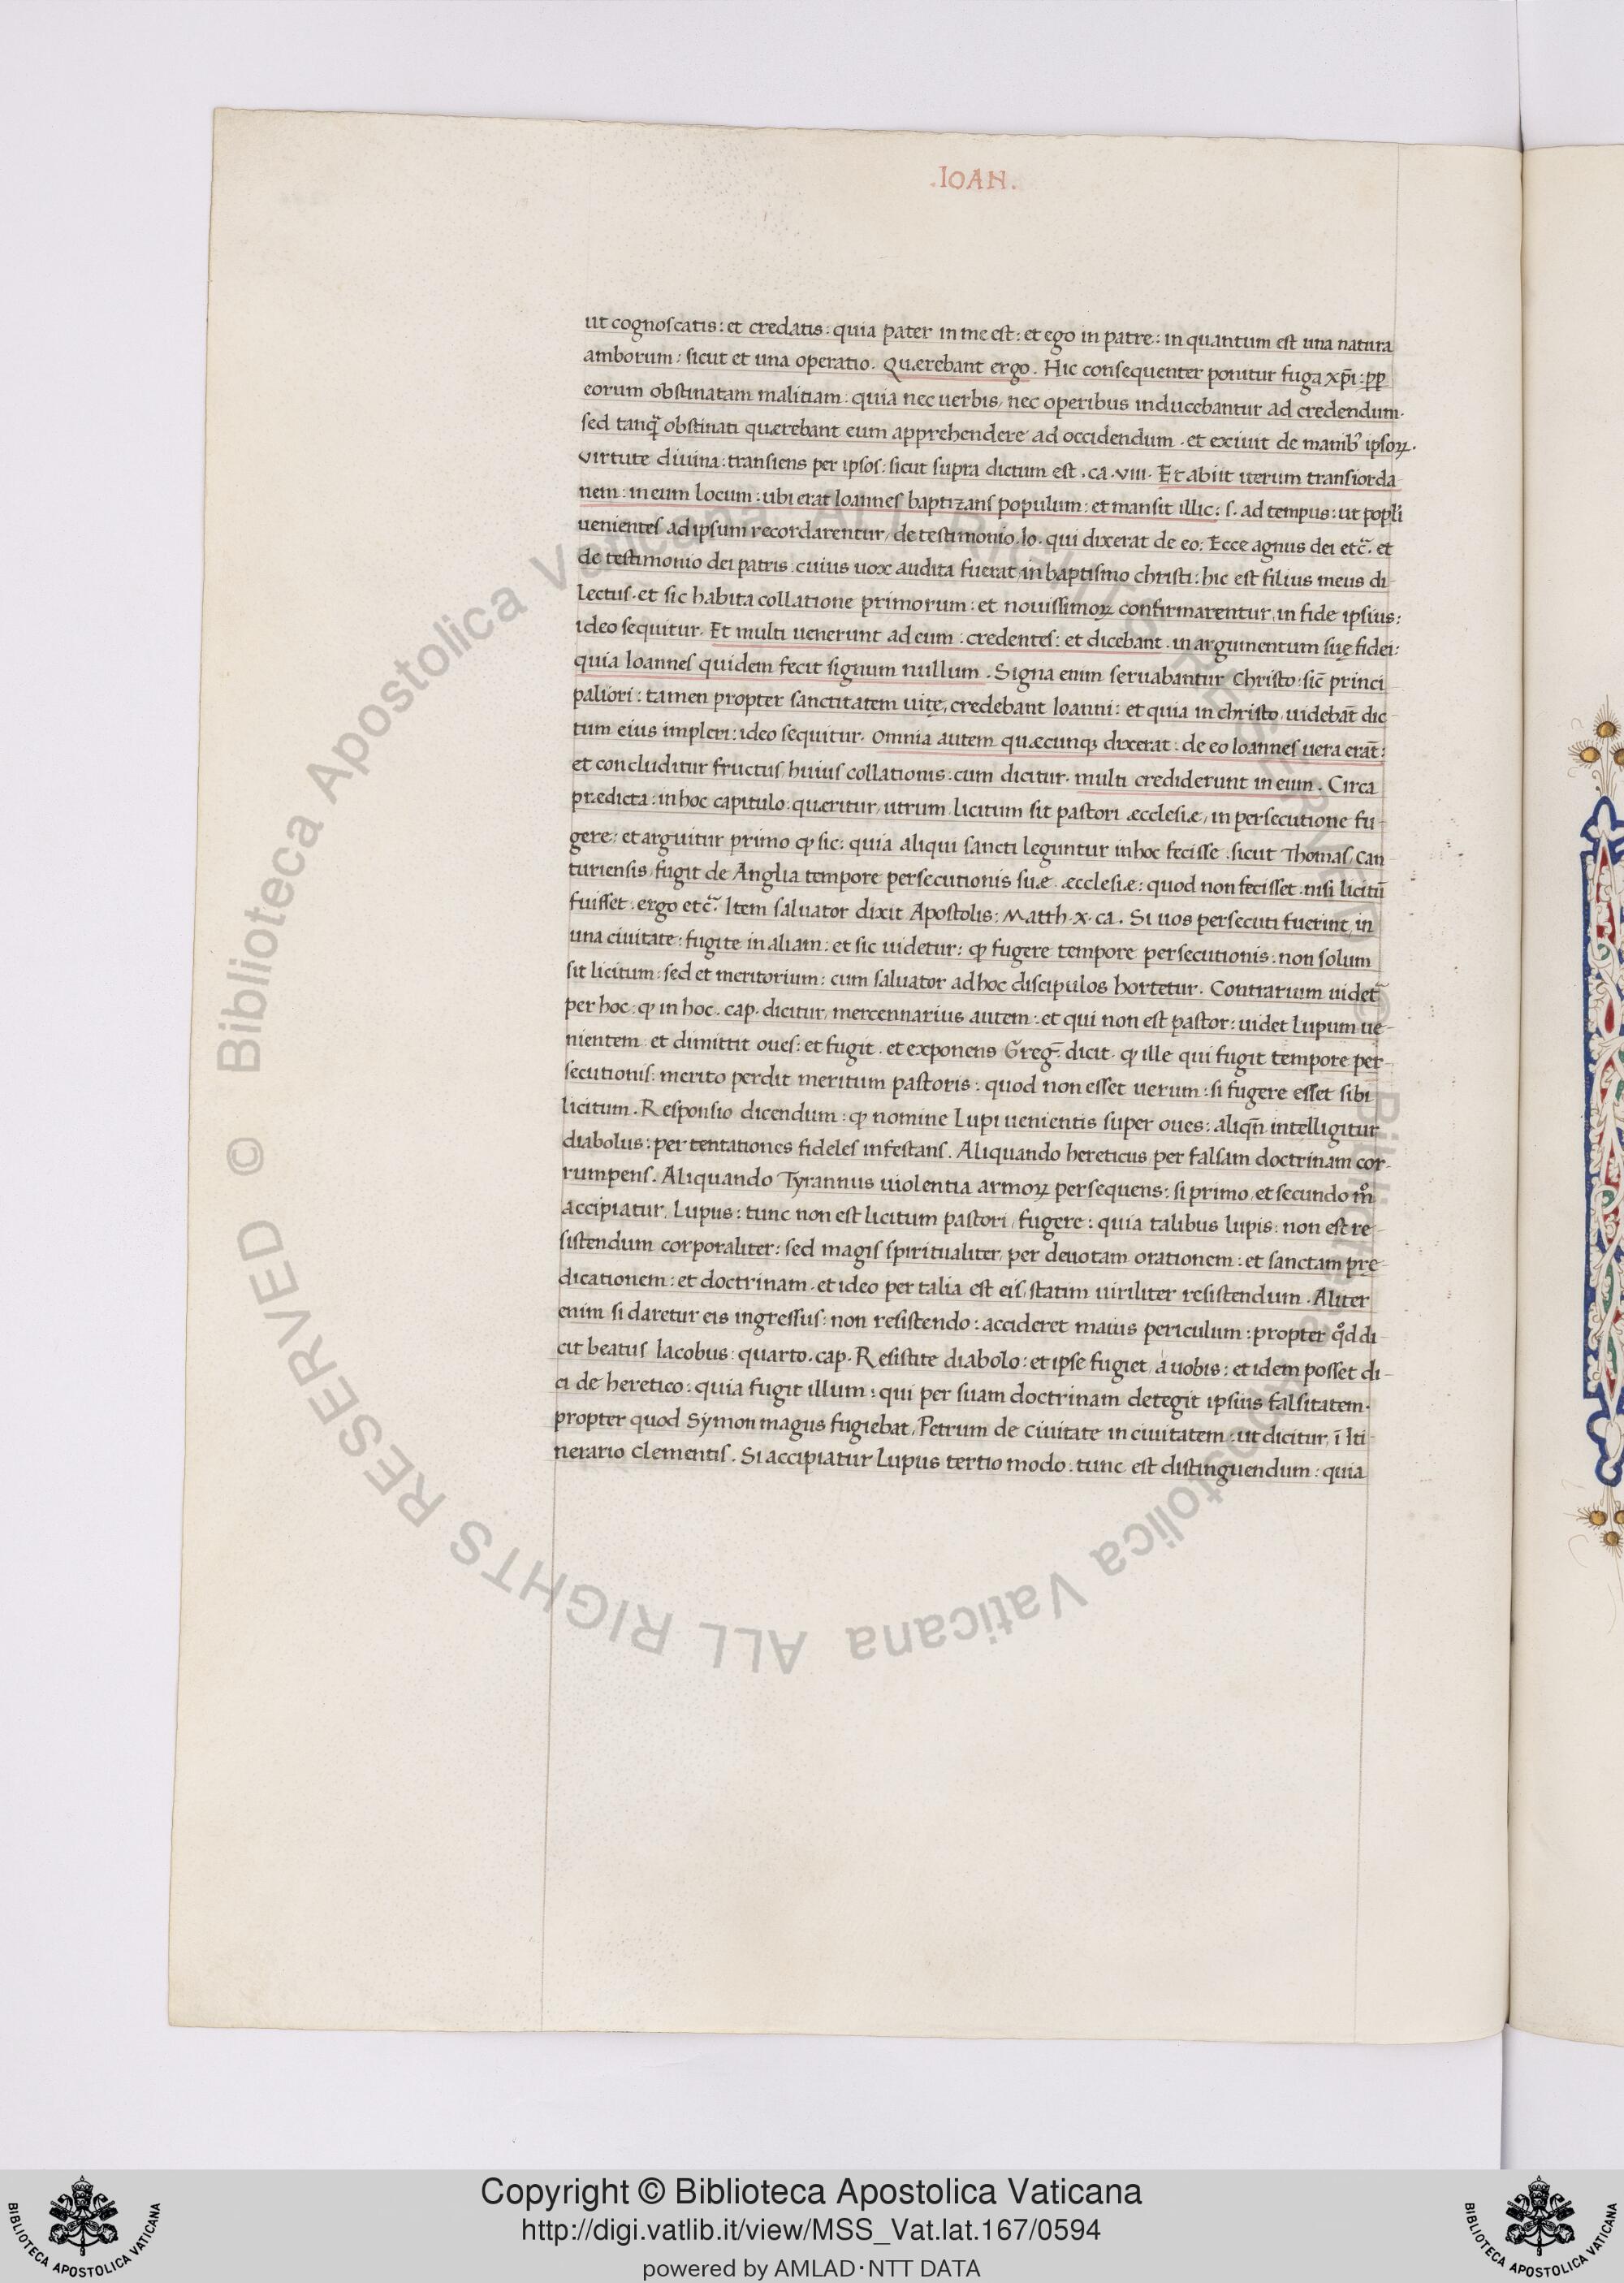 .IOAN.
ut cognoscatis: et credatis: quia pater in me est: et ego in patre: in quantum est una natura
amborum: sicut et una operatio. Quærebant ergo. Hic consequenter ponitur fuga xp̄i: ꝓp
eorum obstinatam malitiam: quia nec uerbis, nec operibus inducebantur ad credendum.
sed tanq̃ obstinati quærebant eum apprehendere ad occidendum. et exiuit de manibꝰ ipsoꝝ.
virtute diuina: transiens per ipsos: sicut supra dictum est. ca. viii. Et abiit iterum transiorda
nem: in eum locum: ubi erat Ioannes baptizans populum: et mansit illic: s. ad tempus: ut popľi
uenientes ad ipsum recordarentur, de testimonio. Io. qui dixerat de eo: Ecce agnus dei etc̃. et
de testimonio dei patris. cuius uox audita fuerat in baptismo christi: hic est filius meus di-
lectus. et sic habita collatione primorum: et nouissimoꝝ confirmarentur in fide ipsius:
ideo sequitur. Et multi uenerunt ad eum: credentes: et dicebant. in argumentum suę fidei:
quia Ioannes quidem fecit signum nullum. Signa enim seruabantur Christo: sic̃ princi
paliori: tamen propter sanctitatem uitę, credebant Ioanni: et quia in christo uidebāt dic-
tum eius impleri: ideo sequitur. Omnia autem quæcunqꝫ dixerat: de eo Ioannes uera erāt:
et concluditur fructus huius collationis: cum dicitur. multi crediderunt in eum. Circa
prædicta: in hoc capitulo: quæritur, utrum licitum sit pastori æcclesiæ, in persecutione fu-
gere: et arguitur primo ꝙ sic: quia aliqui sancti leguntur in hoc fecisse. sicut Thomas, Can-
turiensis, fugit de Anglia tempore persecutionis suæ æcclesiæ: quod non fecisset. nisi licitū
fuisset. ergo etc̃. Item saluator dixit Apostolis: Matth. x. ca. Si uos persecuti fuerint, in
una ciuitate: fugite in aliam: et sic uidetur: ꝙ fugere tempore persecutionis: non solum
sit licitum: sed et meritorium: cum saluator ad hoc discipulos hortetur. Contrarium uidet᷑
per hoc: ꝙ in hoc. cap. dicitur, mercennarius autem: et qui non est pastor: uidet Lupum ue-
nientem et dimittit oues: et fugit. et exponens Greg̃. dicit. ꝙ ille qui fugit tempore per-
secutionis: merito perdit meritum pastoris: quod non esset uerum: si fugere esset sibi
licitum. Responsio dicendum: ꝙ nomine Lupi uenientis super oues: aliqn̄ intelligitur
diabolus: per tentationes fideles infestans. Aliquando hereticus per falsam doctrinam cor-
rumpens. Aliquando Tyrannus uiolentia armoꝝ persequens: si primo, et secundo mͦ
accipiatur Lupus: tunc non est licitum pastori, fugere: quia talibus lupis: non est re-
sistendum corporaliter: sed magis spiritualiter, per deuotam orationem: et sanctam prę-
dicationem: et doctrinam. et ideo per talia est eis, statim uiriliter resistendum. Aliter
enim si daretur eis ingressus: non resistendo: accideret maius periculum: propter qͦd di-
cit beatus Iacobus: quarto. cap. Resistite diabolo: et ipse fugiet a uobis: et idem posset di-
ci de heretico: quia fugit illum: qui per suam doctrinam detegit ipsius falsitatem.
propter quod Symon magus fugiebat, Petrum de ciuitate in ciuitatem: ut dicitur, ī Iti-
nerario Clementis. Si accipiatur Lupus tertio modo: tunc est distinguendum: quia
© Biblioteca Apostolica Vaticana ALL RIGHTS RESERVED
© Biblioteca Apostolica Vaticana ALL RIGHTS RESERVED
Copyright © Biblioteca Apostolica Vaticana
http://digi.vatlib.it/view/MSS_Vat.lat.167/0594
powered by AMLAD·NTT DATA
BIBLIOTECA APOSTOLICA VATICANA
BIBLIOTECA APOSTOLICA VATICANA